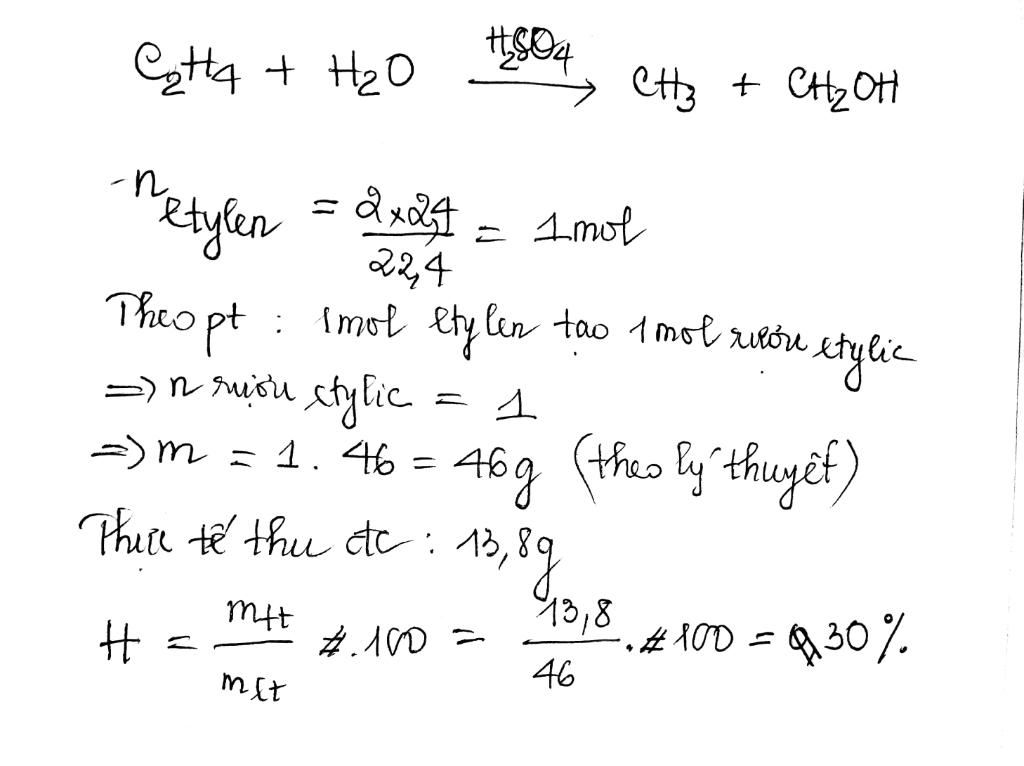 C2H4 + H2O H2SO4 → CH3 + CH2OH
- n etylen = 2 x 2,4 / 22,4 = 1 mol
Theo pt : 1 mol etylen tạo 1 mol rượu etylic
=> n rượu etylic = 1
=> m = 1. 46 = 46g (theo lý thuyết)
Thực tế thu đc : 13,8g
H = mtt / mlt .100 = 13,8 / 46 . 100 = 30%.